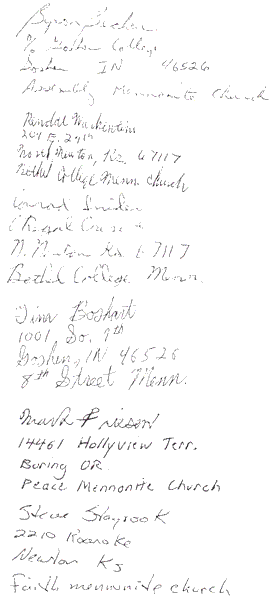 Byron
% Goshen College
Goshen IN 46526
Assembly Mennonite Church
Randal
204 E. 24th
North Newton, Ks. 67117
Bethel College Menn. Church
Conrad
N. Newton Ks 67117
Bethel College Menn.
Tim Boshart
1001 So. 9th
Goshen, IN 46526
8th Street Menn.
Mark Friesen
14461 Hollyview Terr.
Boring OR.
Peace Mennonite Church
Steve
2210 Roanoke
Newton Ks
Faith mennonite church